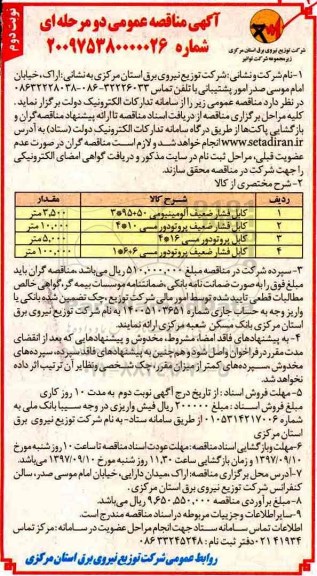 نوبت دوم
آگهی مناقصه عمومی دو مرحله ای
شماره ۲۰۰۹۷۵۳۸۰۰۰۰۰۲۶
شرکت توزیع نیروی برق استان مرکزی
زیرمجموعه شرکت توانیر
۱-نام شرکت و نشانی: شرکت توزیع نیروی برق استان مرکزی به نشانی: اراک، خیابان
امام موسی صدر امور پشتیبانی با تلفن تماس ۳۲۲۲۶۰۳۳-۰۸۶ ۰۸۶۳۲۲۲۸۰۳۸
در نظر دارد مناقصه عمومی زیر را از سامانه تدارکات الکترونیک دولت برگزار نماید.
کلیه مراحل برگزاری مناقصه از دریافت اسناد مناقصه تا ارائه پیشنهاد مناقصه گران و
بازگشایی پاکت‌ها از طریق درگاه سامانه تدارکات الکترونیک دولت (ستاد) به آدرس
www.setadiran.ir انجام خواهد شد و لازم است مناقصه گران در صورت عدم
عضویت قبلی، مراحل ثبت نام در سایت مذکور و دریافت گواهی امضای الکترونیکی
را جهت شرکت در مناقصه محقق سازند.
۲- شرح مختصری از کالا
ردیف شرح کالا مقدار
۱ کابل فشار ضعیف آلومینیومی ۵۰+۹۵*۳ ۳,۵۰۰ متر
۲ کابل فشار ضعیف پروتودور مسی ۱۰*۴ ۱۰,۰۰۰ متر
۳ کابل پروتودور مسی ۱۶*۴ ۵,۰۰۰ متر
۴ کابل فشار ضعیف پروتودور مسی ۶+۶*۱ ۱۰۰,۰۰۰ متر
۳- سپرده شرکت در مناقصه مبلغ ۵۱۰,۰۰۰,۰۰۰ ریال می‌باشد. مناقصه گران باید
مبلغ فوق را به صورت ضمانت نامه بانکی، ضمانتنامه موسسات بیمه گر، گواهی خالص
مطالبات قطعی تایید شده توسط امور مالی شرکت توزیع، چک تضمین شده بانکی یا
واریز وجه به حساب جاری شماره ۱۴۰۰۵۱۰۳۶۵۱ به نام شرکت توزیع نیروی برق
استان مرکزی بانک مسکن شعبه مرکزی ارائه نمایند.
۴- به پیشنهادهای فاقد امضا، مشروط، مخدوش و پیشنهادهایی که بعد از انقضای
مدت مقرر در فراخوان واصل شود و همچنین به پیشنهادهای فاقد سپرده، سپرده‌های
مخدوش، سپرده‌های کمتر از میزان مقرر، چک شخصی و نظایر آن ترتیب اثر داده
نخواهد شد.
۵- مهلت فروش اسناد: از تاریخ درج آگهی نوبت دوم به مدت ۱۰ روز کاری
مبلغ فروش اسناد: مبلغ ۲۰۰۰۰۰ ریال فیش واریزی در وجه سیبا بانک ملی به
شماره ۰۱۰۵۳۱۴۲۱۷۰۰۶ از طریق سامانه ستاد- به نام شرکت توزیع نیروی برق
استان مرکزی
۶-مهلت وبازگشایی اسناد مناقصه: مهلت عودت اسناد مناقصه تا ساعت ۱۰ روز شنبه مورخ
۱۳۹۷/۰۹/۱۰ و زمان بازگشایی ساعت ۱۱,۳۰ روز شنبه مورخ ۱۳۹۷/۰۹/۱۰ می‌باشد.
۷-آدرس محل برگزاری مناقصه: اراک ,میدان دارایی، خیابان امام موسی صدر، سالن
کنفرانس شرکت توزیع نیروی برق استان مرکزی.
۸-مبلغ برآوردی مناقصه ۹,۶۵۰,۵۵۰,۰۰۰ ریال می‌باشد.
۹-سایر اطلاعات وجزییات مربوطه در اسناد مناقصه مندرج است.
اطلاعات تماس سامانه ستاد جهت انجام مراحل عضویت در سامانه: مرکز تماس
۰۲۱۴۱۹۳۴ دفتر ثبت نام : ۰۸۶۳۳۲۴۵۲۴۸
روابط عمومی شرکت توزیع نیروی برق استان مرکزی